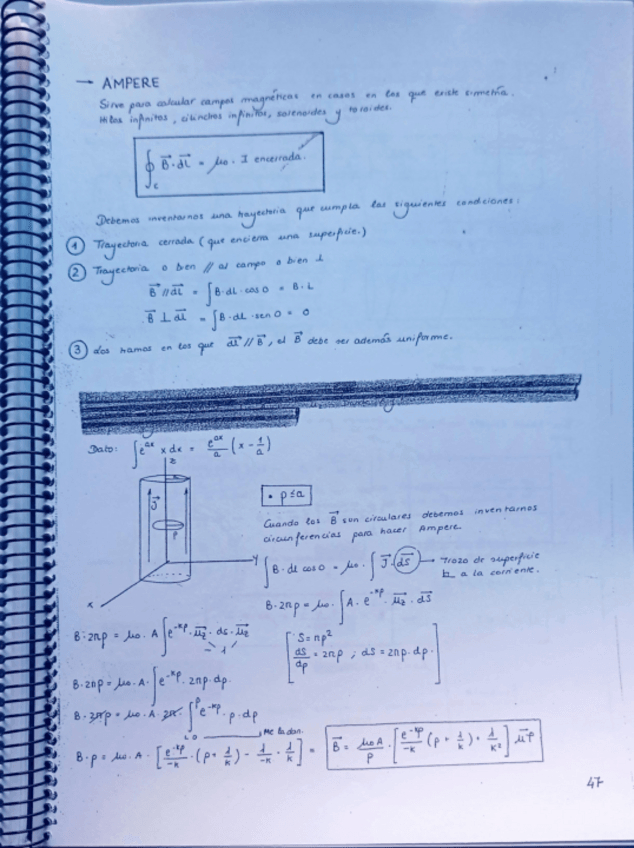 → AMPERE
Sirve para calcular campos magnéticos en casos en los que existe simetría.
Hilos infinitos, cilindros infinitos, solenoides y toroides.
∮c B⃗·dL⃗ = μo · I encerrada.
Debemos inventarnos una trayectoria que cumpla las siguientes condiciones:
① Trayectoria cerrada (que encierra una superficie.)
② Trayectoria o bien // al campo o bien ⊥
B⃗ // dL⃗ = ∫B·dL·cos0 = B·L
B⃗ ⊥ dL⃗ = ∫B·dL·sen0 = 0
③ Los tramos en los que dL⃗ // B⃗, el B⃗ debe ser además uniforme.
Dato: ∫e^ax x dx = e^ax/a (x - 1/a)
z
J⃗
ρ
y
x
• ρ≤a
Cuando los B⃗ son circulares debemos inventarnos
circunferencias para hacer Ampere
∫B·dl cos0 = μo · ∫J⃗·dS⃗ → Trozo de superficie
⊥ a la corriente.
B·2πρ = μo · ∫A·e^-kρ · u⃗z · dS⃗
B·2πρ = μo · A ∫e^-kρ · u⃗z · ds · u⃗z
1
S = πρ²
dS/dρ = 2πρ ; dS = 2πρ·dρ.
B·2πρ = μo·A· ∫e^-kρ · 2πρ·dρ.
B·2πρ = μo·A 2π· ∫₀^ρ e^-kρ · ρ·dρ
Me la dan.
B·ρ = μo·A · [e^-kρ/-k · (ρ + 1/k) - 1/-k · 1/k] = B⃗ = μoA/ρ · [e^-kρ/-k (ρ + 1/k) + 1/k²] u⃗φ
47